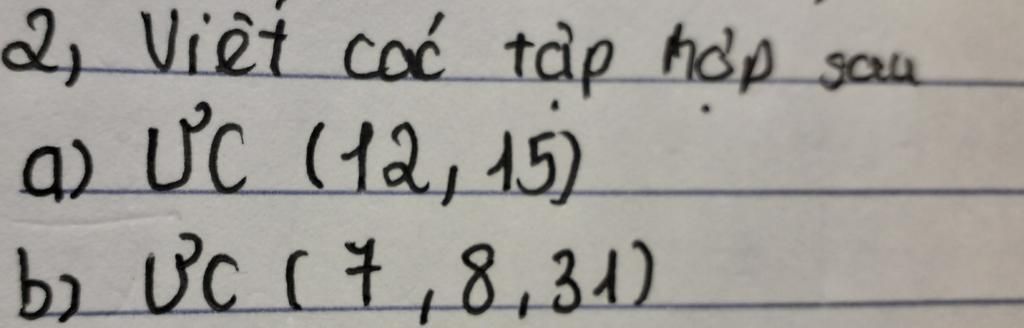 2, Viết các tập hợp sau
a) ƯC (12, 15)
b) ƯC (7, 8, 31)